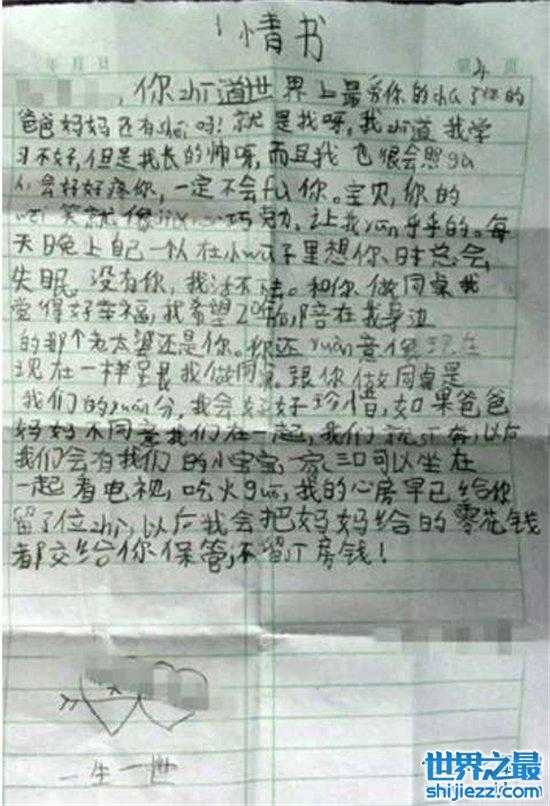 情书
你zhi道世界上最爱你的chu了你的
爸爸妈妈还有shei吗!就是我呀,我zhi道我学
习不好,但是我长的帅呀,而且我也很会照gu
人会好好疼你,一定不会fu你。宝贝,你的
笑就像巧克力,让我yun乎乎的。每
天晚上自己一人在小wu子里想你、时总会,
失眠,没有你,我活不。和你做同桌我
觉得好幸福,我希望20年后,陪在我身边
的那个老太婆还是你。你还yuàn意像现在
现在一样是我做同桌跟你做同桌是
我们的yuan分,我会好好珍惜,如果爸爸
妈妈不同意我们在一起,我们就si奔,以后
我们会有我们的小宝宝,一家三口可以坐在
一起看电视,吃火guo,我的心房早已给你
留了位zhi,以后我会把妈妈给的零花钱
都交给你保管,不留si房钱!
一生一世
世界之最
shijiezzl.com